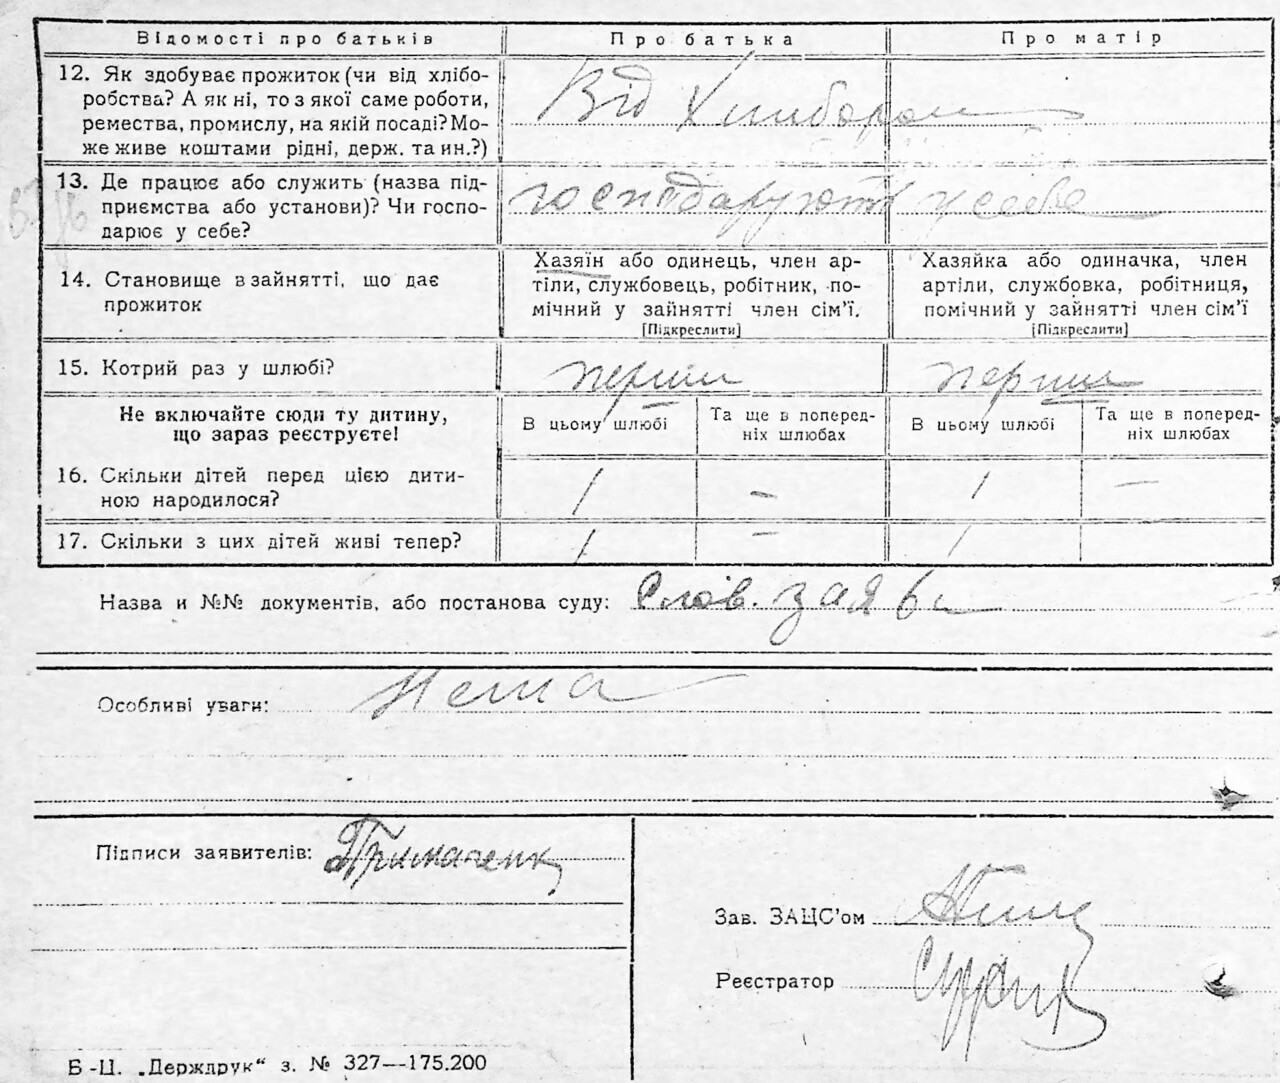 Відомості про батьків Про батька Про матір
12. Як здобуває прожиток (чи від хлібо-
робства? А як ні, то з якої саме роботи,
ремества, промислу, на якій посаді? Мо-
же живе коштами рідні, держ. та ин.?)
Від
13. Де працює або служить (назва під-
приємства або установи)? Чи госпо-
дарює у себе?
господарують у себе
14. Становище в зайнятті, що дає
прожиток
Хазяїн або одинець, член ар-
тіли, службовець, робітник, по-
мічний у зайнятті член сім’ї.
[Підкреслити]
Хазяйка або одиначка, член
артіли, службовка, робітниця,
помічний у зайнятті член сім’ї
[Підкреслити]
15. Котрий раз у шлюбі? перший перший
Не включайте сюди ту дитину,
що зараз реєструєте!
В цьому шлюбі
Та ще в поперед-
ніх шлюбах
В цьому шлюбі
Та ще в поперед-
ніх шлюбах
16. Скільки дітей перед цією дити-
ною народилося?
1 — 1 —
17. Скільки з цих дітей живі тепер? 1 — 1
Назва и №№ документів, або постанова суду: Слов. заява
Особливі уваги: Нема
Підписи заявителів: Примаченк
Зав. ЗАЦС’ом
Реєстратор
Б-Ц. „Держдрук“ з. № 327—175.200